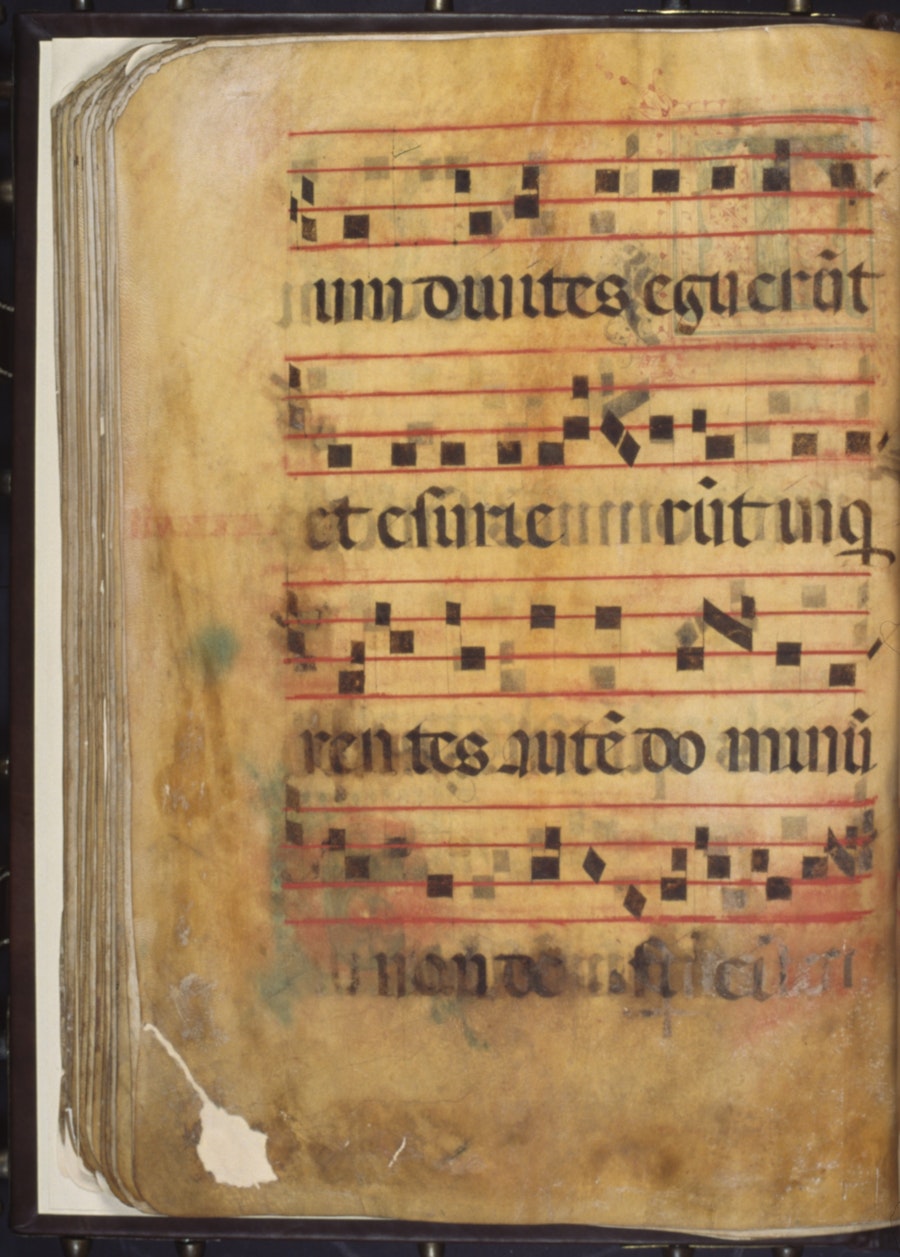 um divites eguerūt
et esurie rūt inq
rentes autē do minū
non de fici